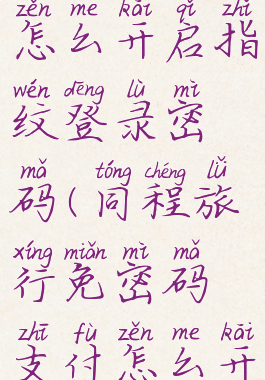 zěn me kāi qǐ zhǐ
怎么开启指
wén dēng lù mì
纹登录密
mǎ tóng chéng lǚ
码(同程旅
xíng miǎn mì mǎ
行免密码
zhī fù zěn me kāi
支付怎么开